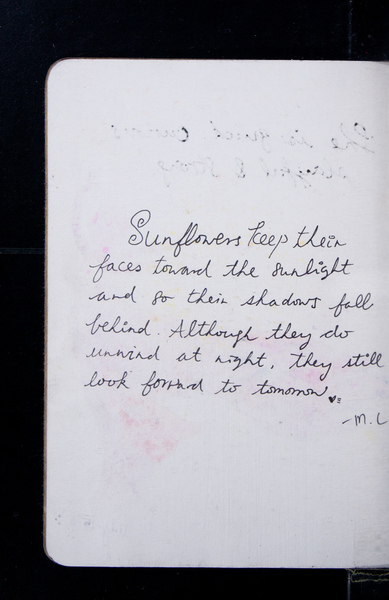 Sunflowers keep their
faces toward the sunlight
and so their shadows fall
behind. Although they do
unwind at night, they still
look forward to tomorrow.
-M.L